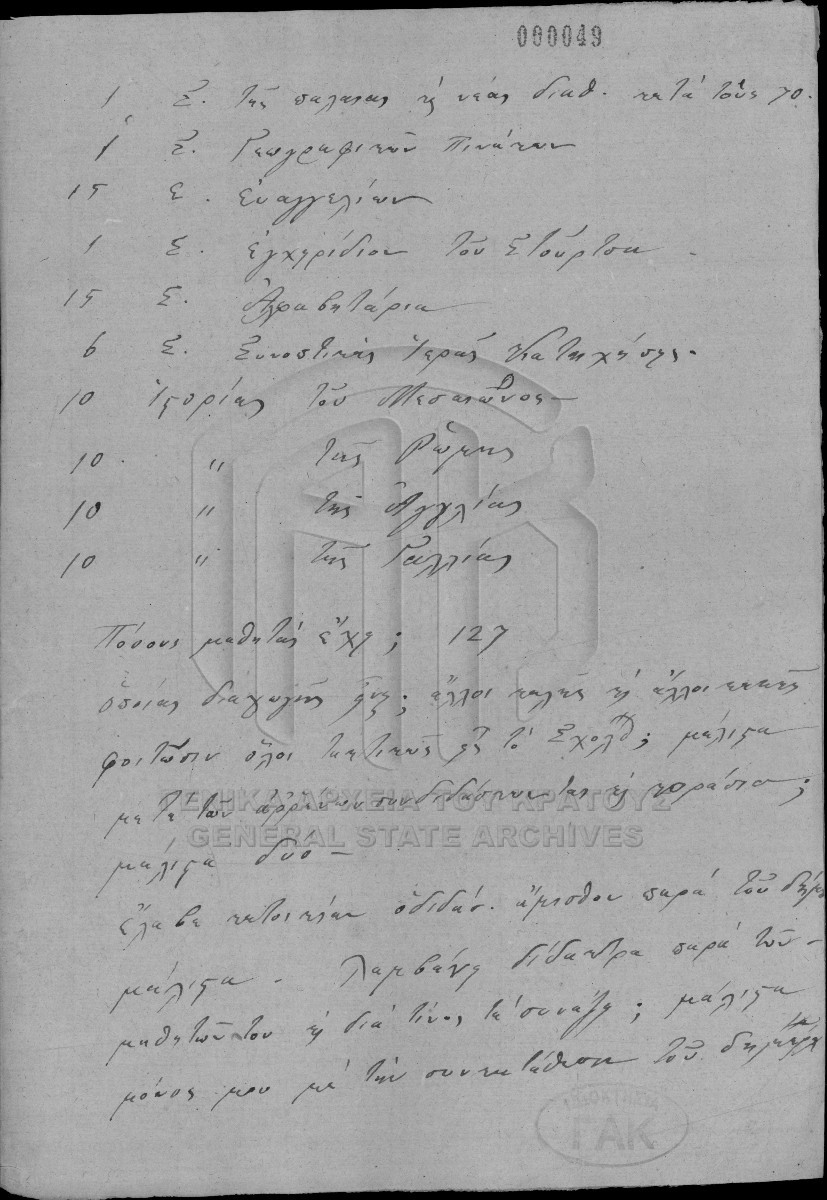 000049
1 Σ. τῆς παλαιᾶς καὶ νέας διαθ. κατὰ τοὺς 70.
1 Σ. Γεωγραφικῶν Πινάκων
15 Σ. Εὐαγγελίων
1 Σ. ἐγχειρίδιον τοῦ Στούρτσα
15 Σ. Ἀλφαβητάρια
6 Σ. Συνοπτικῆς Ἱερᾶς Κατηχήσης.
10 Ἱστορίας τοῦ Μεσαιῶνος
10 " τῆς Ῥώμης
10 " τῆς Ἀγγλίας
10 " τῆς Γαλλίας
Πόσους μαθητὰς ἔχει; 127
ὁποίας διαγωγῆς εἶναι; ἄλλοι καλῆς καὶ ἄλλοι κακῆς
φοιτῶσιν ὅλοι τακτικῶς εἰς τὸ Σχολεῖον; μάλιστα
μετὰ τῶν ἀῤῥένων συνδιδάσκονται καὶ κοράσια;
μάλιστα δύο
ἔλαβε κατοικίαν ὁ διδάσ. ἄμισθον παρὰ τοῦ δήμου
μάλιστα. Λαμβάνει δίδακτρα παρὰ τῶν
μαθητῶν του καὶ διὰ τίνος τὰ συνάζει; μάλιστα
μόνος μου μὲ τὴν συγκατάθεσιν τοῦ δημάρχ
ΓΕΝΙΚΑ ΑΡΧΕΙΑ ΤΟΥ ΚΡΑΤΟΥΣ
GENERAL STATE ARCHIVES
ΓΑΚ